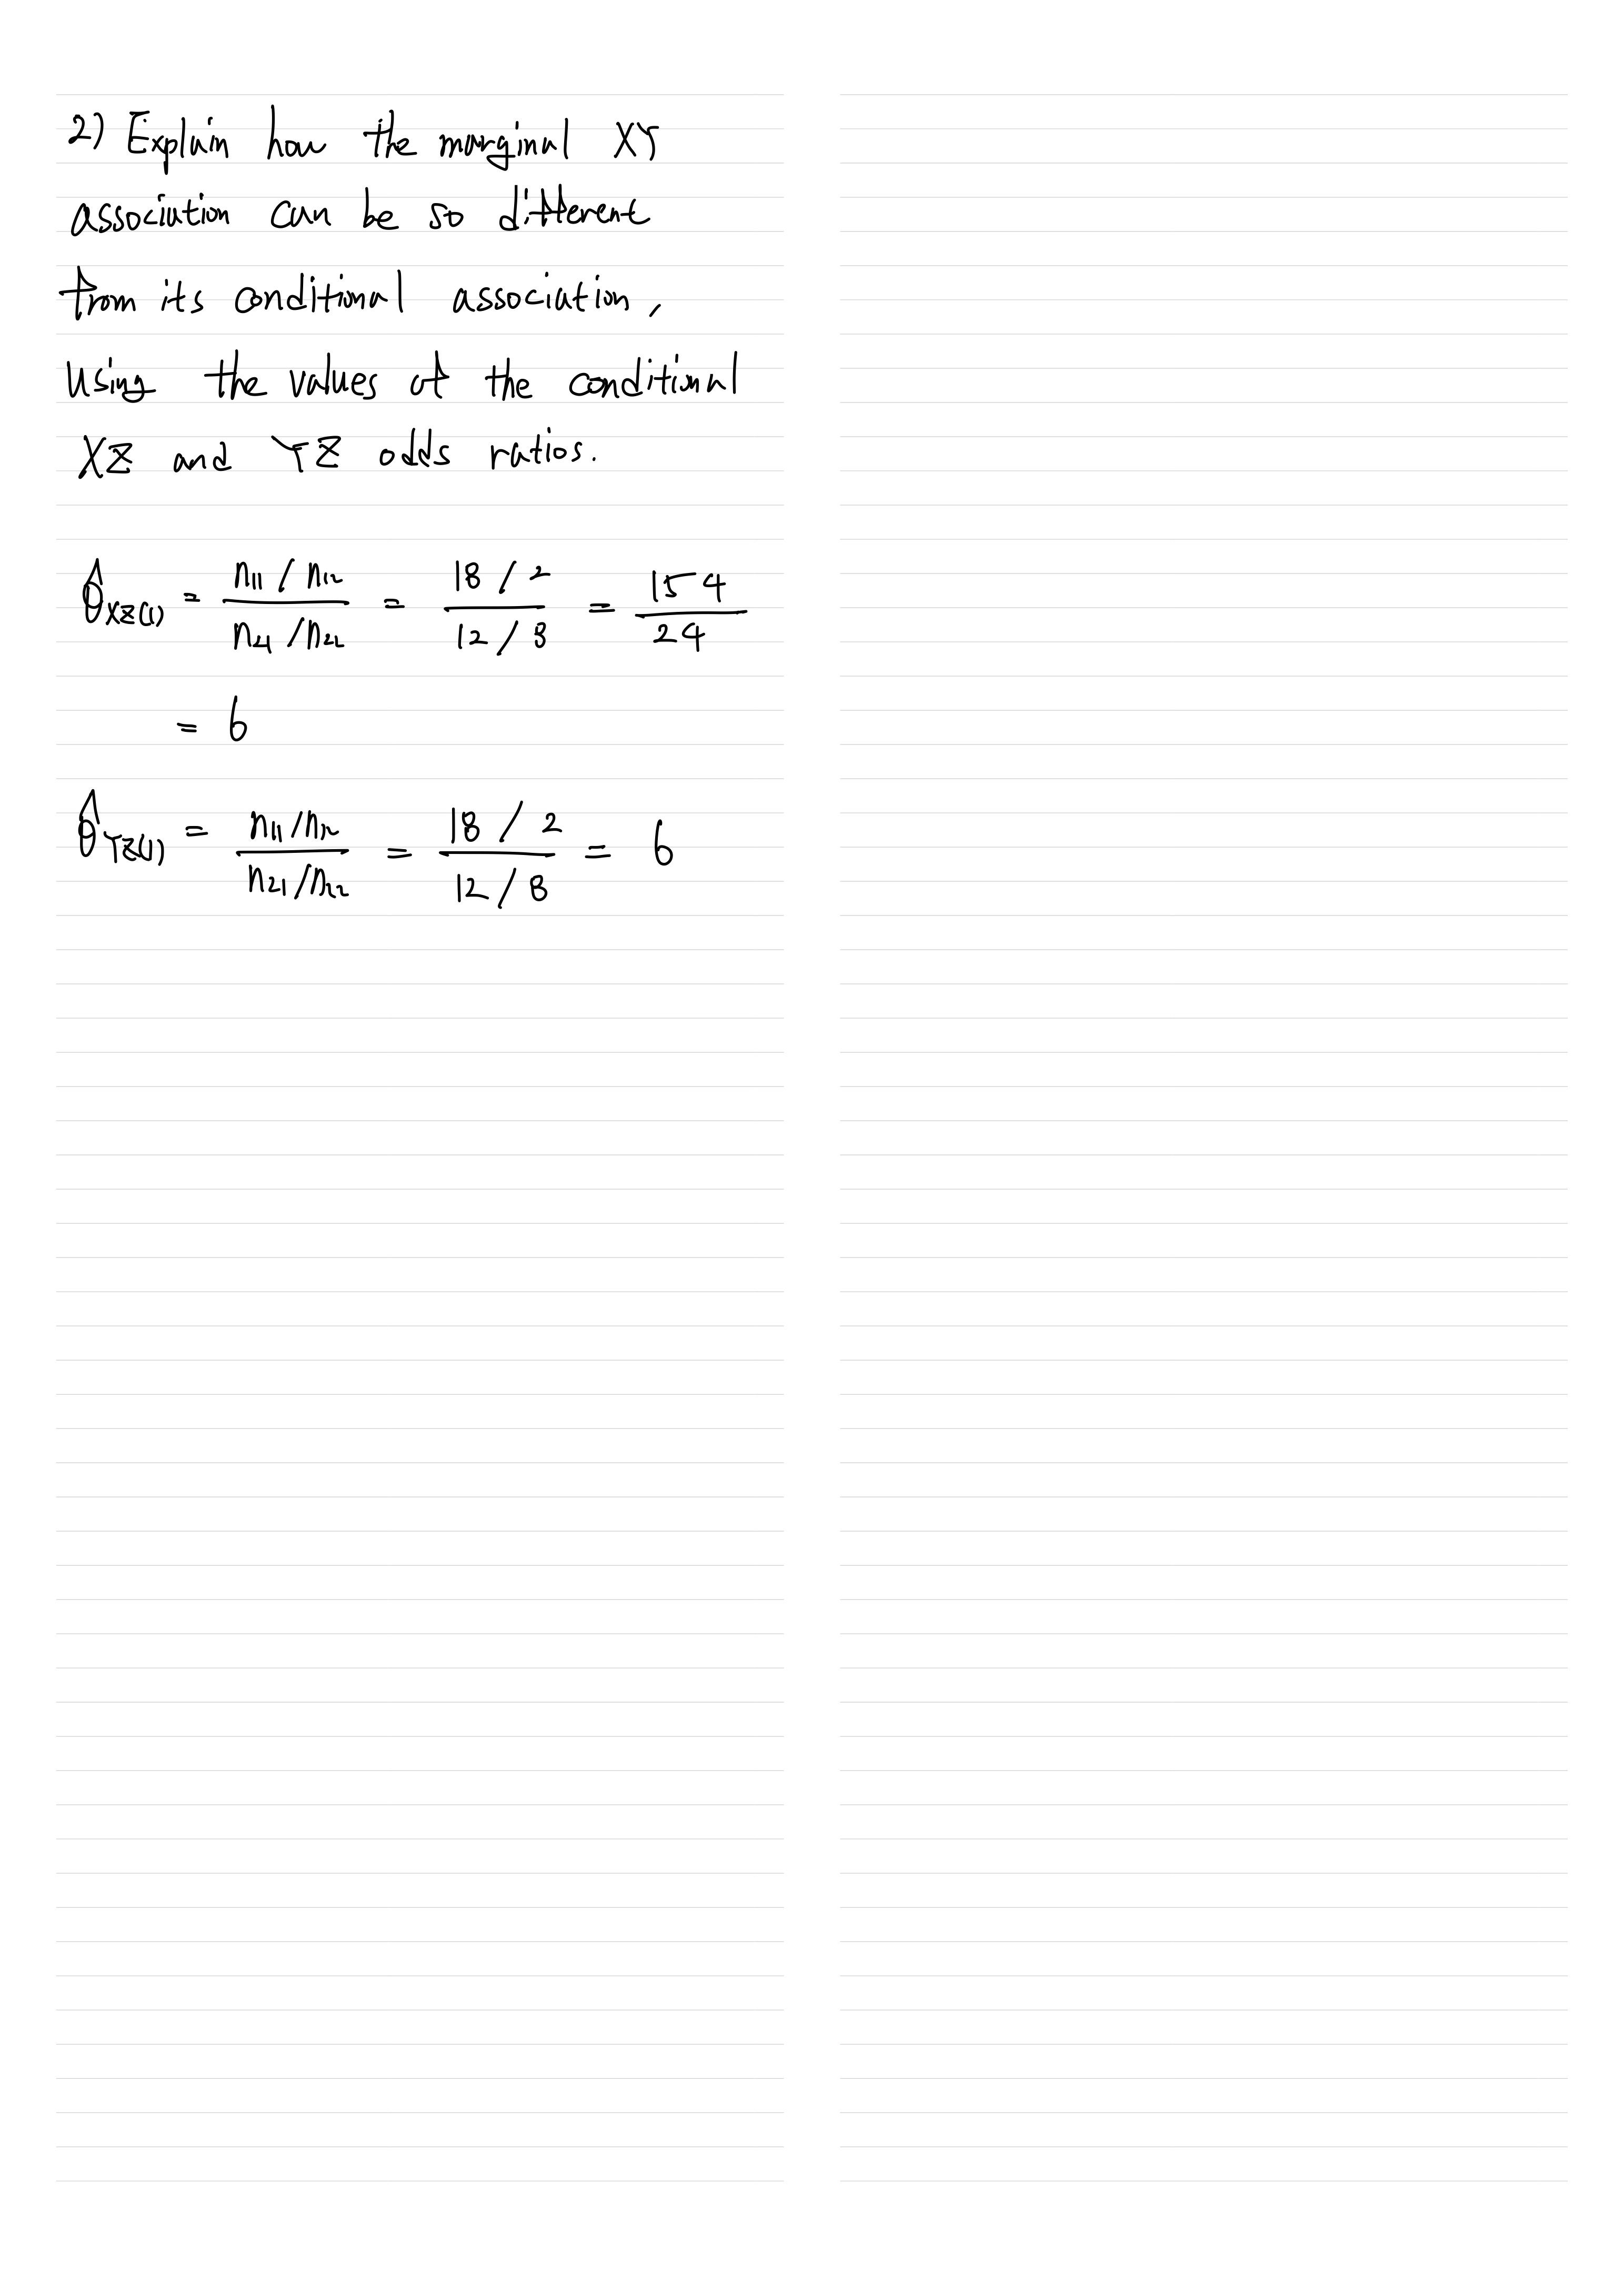 2) Explain how the marginal XY
association can be so different
from its conditional association,
Using the values of the conditional
XZ and YZ odds ratios.
θ̂XZ(1) = (n11 / n12) / (n21 / n22) = (18 / 2) / (12 / 8) = 154 / 24
= 6
θ̂YZ(1) = (n11 / n12) / (n21 / n22) = (18 / 2) / (12 / 8) = 6